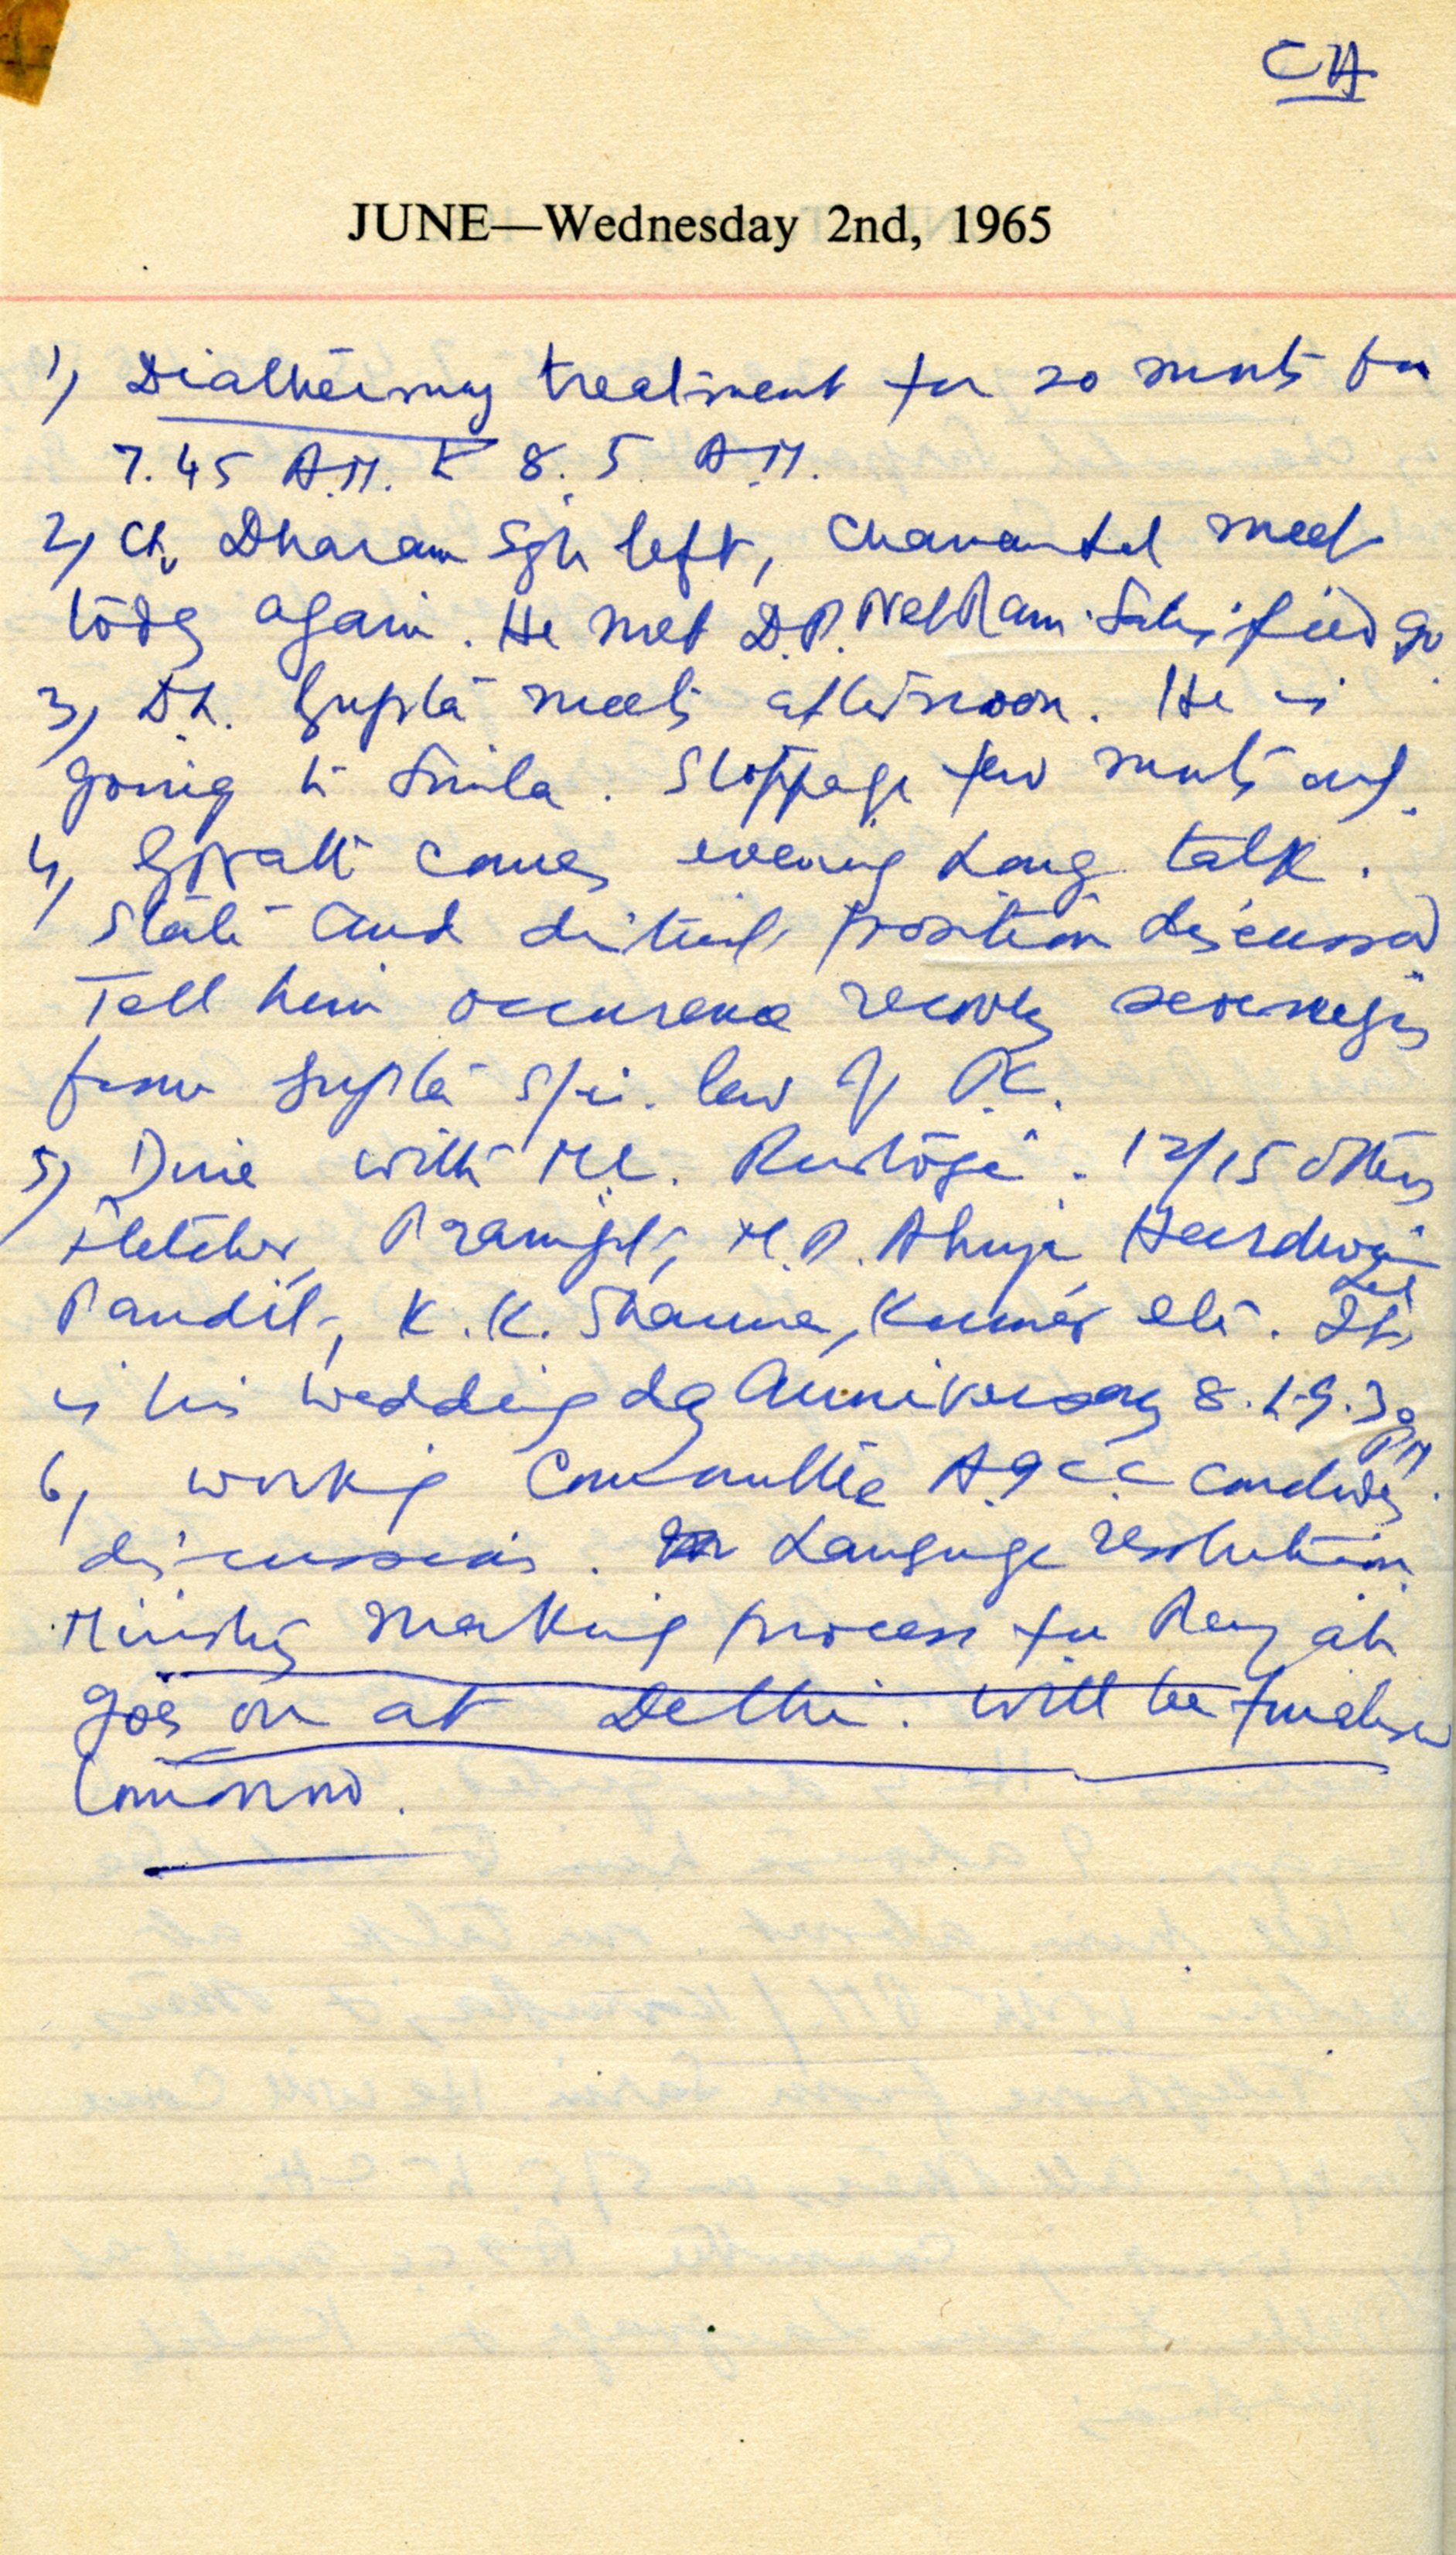 CH
JUNE—Wednesday 2nd, 1965
1) Diathermy treatment for 20 munts
7.45 A.M. to 8.5 A.M.
2) Ch. Dharam Sgh left, meet
today again. He met D.P. Nek Ram. Satisfied go.
3) Dr. Gupta meets afternoon. He is
going to Simla. Stoppage few munts only.
4) comes evening Long talk.
State and district position discussed
Tell him occurence
from Gupta law of P.C.
5) Dine with M.L. Rustogi. 12/15 others
Fletcher, M.P. Ahuja Hardwari
Pandit, K.K. Sharma, Kumar Lal etc. It
is his wedding day Anniversary 8. to 9.30 PM
6) working Committee A.I.C.C.
discussions. Language resolution.
Ministry making process for Punjab
goes on at Delhi. will be finalised
tomorrow.